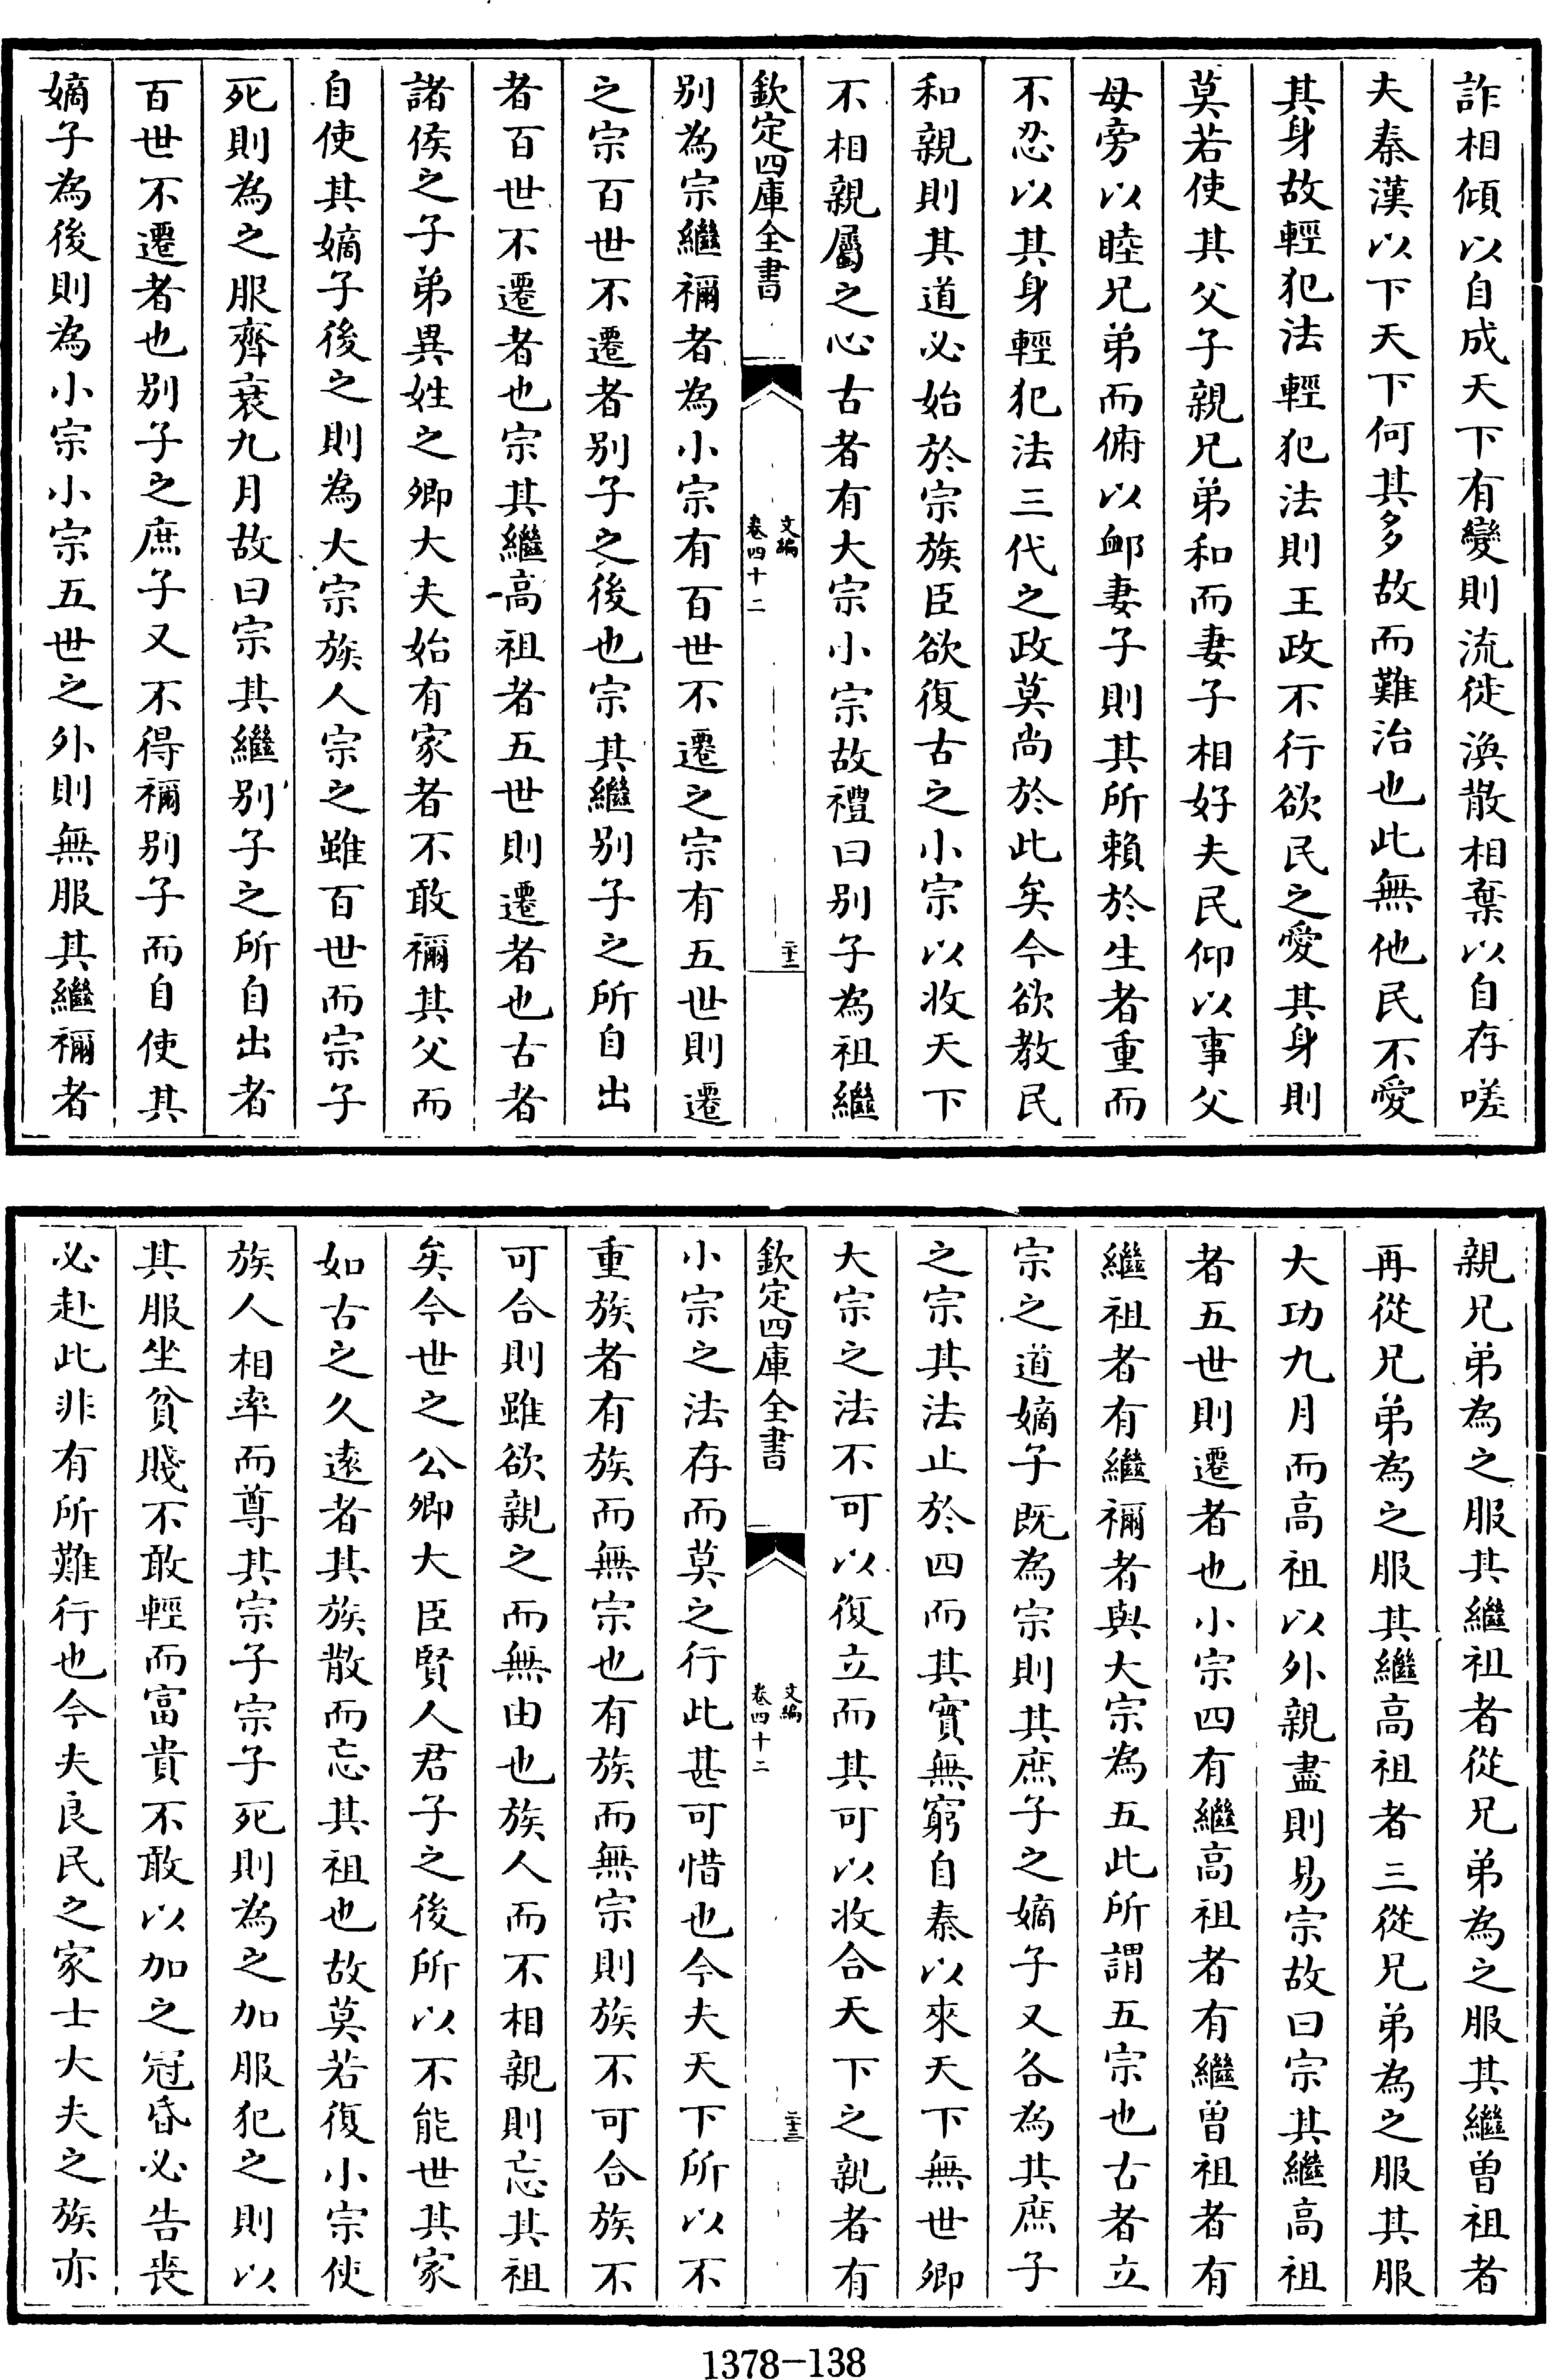 詐相傾以自成天下有變則流徙渙散相棄以自存嗟
夫秦漢以下天下何其多故而難治也此無他民不愛
其身故輕犯法輕犯法則王政不行欲民之愛其身則
莫若使其父子親兄弟和而妻子相好夫民仰以事父
母旁以睦兄弟而俯以卹妻子則其所賴於生者重而
不忍以其身輕犯法三代之政莫尚於此矣今欲教民
和親則其道必始於宗族臣欲復古之小宗以收天下
不相親屬之心古者有大宗小宗故禮曰别子為祖繼
欽定四庫全書
文編
卷四十二
二十二
别為宗繼禰者為小宗有百世不遷之宗有五世則遷
之宗百世不遷者别子之後也宗其繼别子之所自出
者百世不遷者也宗其繼高祖者五世則遷者也古者
諸侯之子弟異姓之卿大夫始有家者不敢禰其父而
自使其嫡子後之則為大宗族人宗之雖百世而宗子
死則為之服齊衰九月故曰宗其繼别子之所自出者
百世不遷者也别子之庶子又不得禰别子而自使其
嫡子為後則為小宗小宗五世之外則無服其繼禰者
親兄弟為之服其繼祖者從兄弟為之服其繼曽祖者
再從兄弟為之服其繼高祖者三從兄弟為之服其服
大功九月而高祖以外親盡則易宗故曰宗其繼高祖
者五世則遷者也小宗四有繼高祖者有繼曽祖者有
繼祖者有繼禰者與大宗為五此所謂五宗也古者立
宗之道嫡子既為宗則其庶子之嫡子又各為其庶子
之宗其法止於四而其實無窮自秦以來天下無世卿
大宗之法不可以復立而其可以收合天下之親者有
欽定四庫全書
文編
卷四十二
二十三
小宗之法存而莫之行此甚可惜也今夫天下所以不
重族者有族而無宗也有族而無宗則族不可合族不
可合則雖欲親之而無由也族人而不相親則忘其祖
矣今世之公卿大臣賢人君子之後所以不能世其家
如古之久遠者其族散而忘其祖也故莫若復小宗使
族人相率而尊其宗子宗子死則為之加服犯之則以
其服坐貧賤不敢輕而富貴不敢以加之冠昏必告喪
必赴此非有所難行也今夫良民之家士大夫之族亦
1378-138